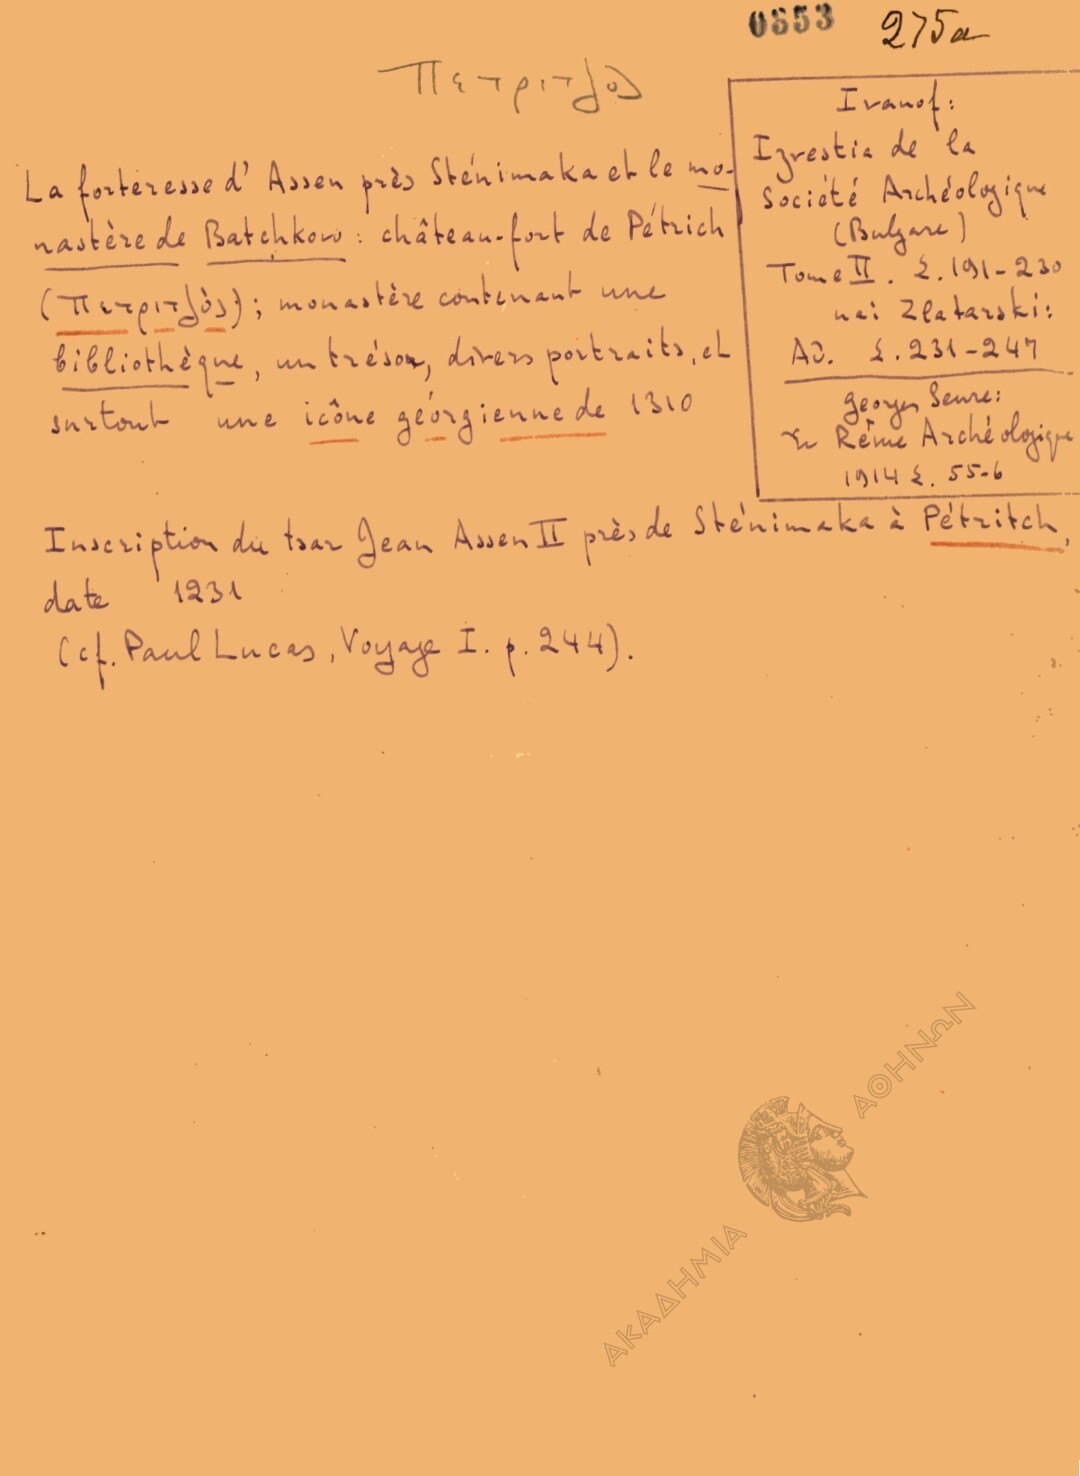 0853 275a
Πετριτζὸς
La forteresse d' Assen près Sténimaka et le mo-
nastère de Batchkovo : château-fort de Pétrich
(Πετριτζὸς); monastère contenant une
bibliothèque, un trésor, divers portraits, et
surtout une icône géorgienne de 1310
Ivanof:
Izvestia de la
Société Archéologique
(Bulgare)
Tome II. Σ. 191-230
καὶ Zlatarski:
Αὐ. Σ. 231-247
Georges Seure:
Ἐν Revue Archéologique
1914 Σ. 55-6
Inscription du tsar Jean Assen II près de Sténimaka à Pétritch,
date 1231
(cf. Paul Lucas, Voyage I. p. 244).
ΑΚΑΔΗΜΙΑ ΑΘΗΝΩΝ